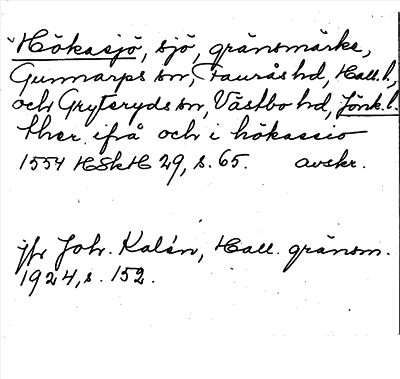 Hökasjö, sjö, gränsmärke,
Gunnarps sn, Faurås hd, Hall. l.,
och Gryteryds sn, Västbo hd, Jönk. l.
ther ifrå och i hökassio
1554 HSkH 29, s. 65. avskr.
jfr Joh. Kalén, Hall. gränsm.
1924, s. 152.